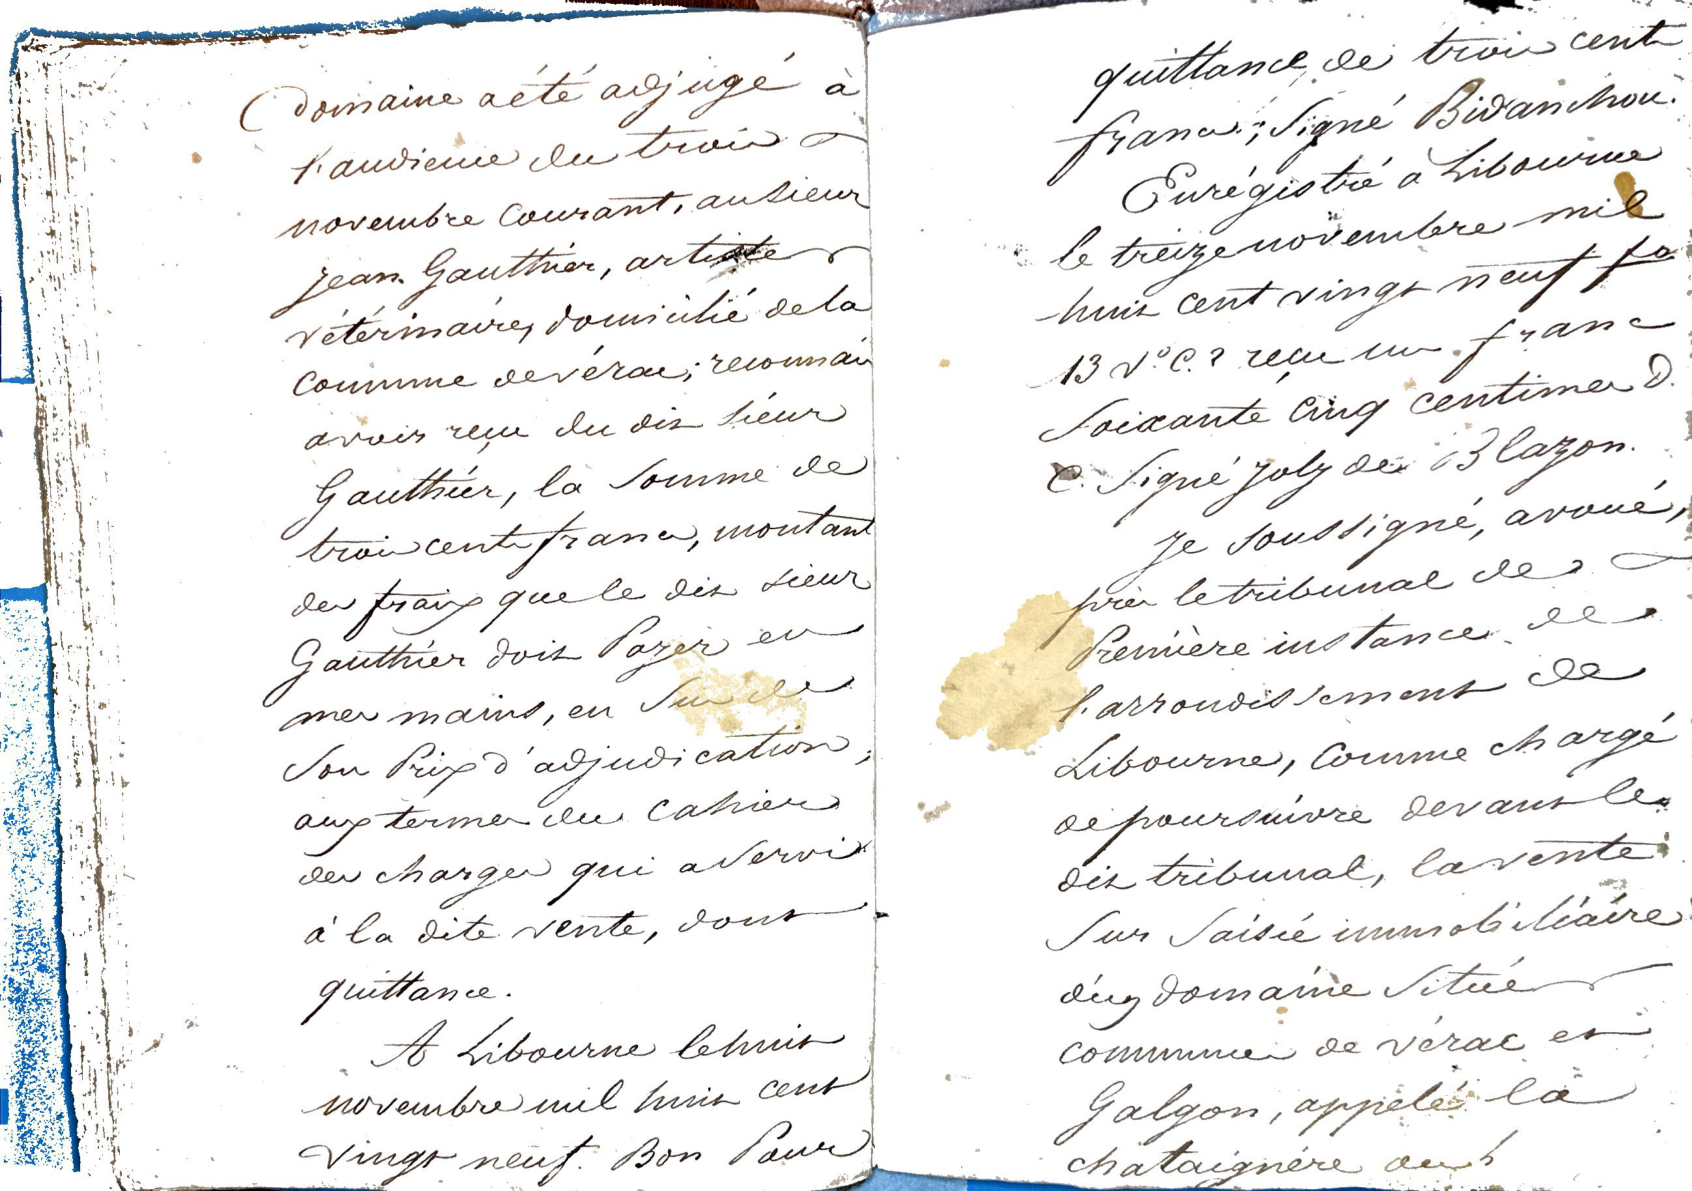 Domaine a été adjugé à
l'audience du trois
novembre courant, au sieur
jean Gauthier, artiste
vétérinaire, domicilié de la
commune de vérac; reconnais
avoir reçu du dit sieur
Gauthier, la somme de
trois cents francs, montant
des fraix que le dit sieur
Gauthier doit Payer en
mes mains, en sus de
son Prix d'adjudication,
aux termes du cahier
des charges qui a servi
à la dite vente, dont
quittance.
A Libourne le huit
novembre mil huit cent
vingt neuf. Bon Pour
quittance de trois cents
francs; signé Bidanchou.
Enrégistré à Libourne
le treize novembre mil
huit cent vingt neuf fo
13 Vo. C. 7 reçu un franc
soixante cinq centimes d.
C. signé joly de Blazon.
Je soussigné, avoué,
près le tribunal de
Première instance de
l'arrondissement de
Libourne, comme chargé
de poursuivre devant le
dit tribunal, la vente
sur saisie immobiliaire
d'un domaine situé
communes de vérac et
Galgon, appelé la
chataignère ou